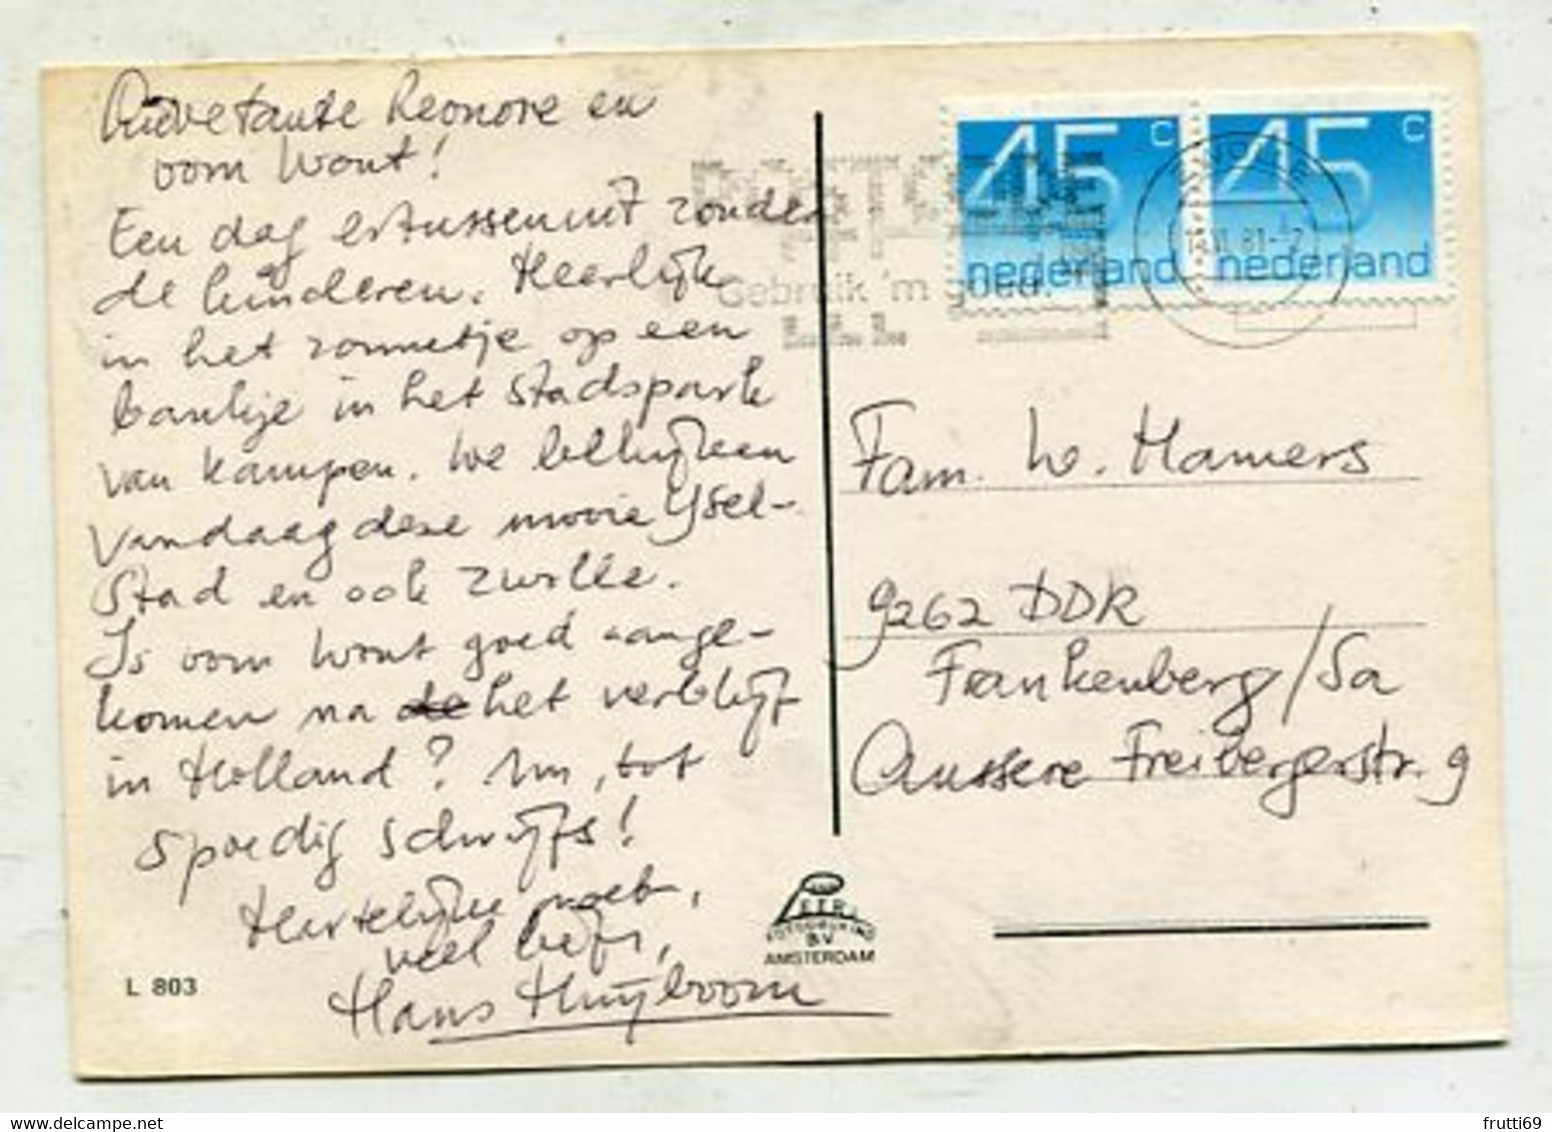 Lieve tante Leonore en
oom Wout!
Een dag ertussenuit zonder
de kinderen. Heerlijk
in het zonnetje op een
bankje in het Stadspark
van Kampen. We bekijken
vandaag deze mooie IJssel-
stad en ook Zwolle.
Is oom Wout goed aange-
komen na het verblijf
in Holland? Nu, tot
spoedig schrijfs!
Hartelijke groet,
veel liefs,
Hans Huijboom
L 803
AMSTERDAM
BV
POSTCODE
Gebruik 'm goed.
45 c
nederland
45 c
nederland
Fam. W. Hamers
9262 DDR
Frankenberg/Sa
Aussere Freibergerstr. 9
frutti69